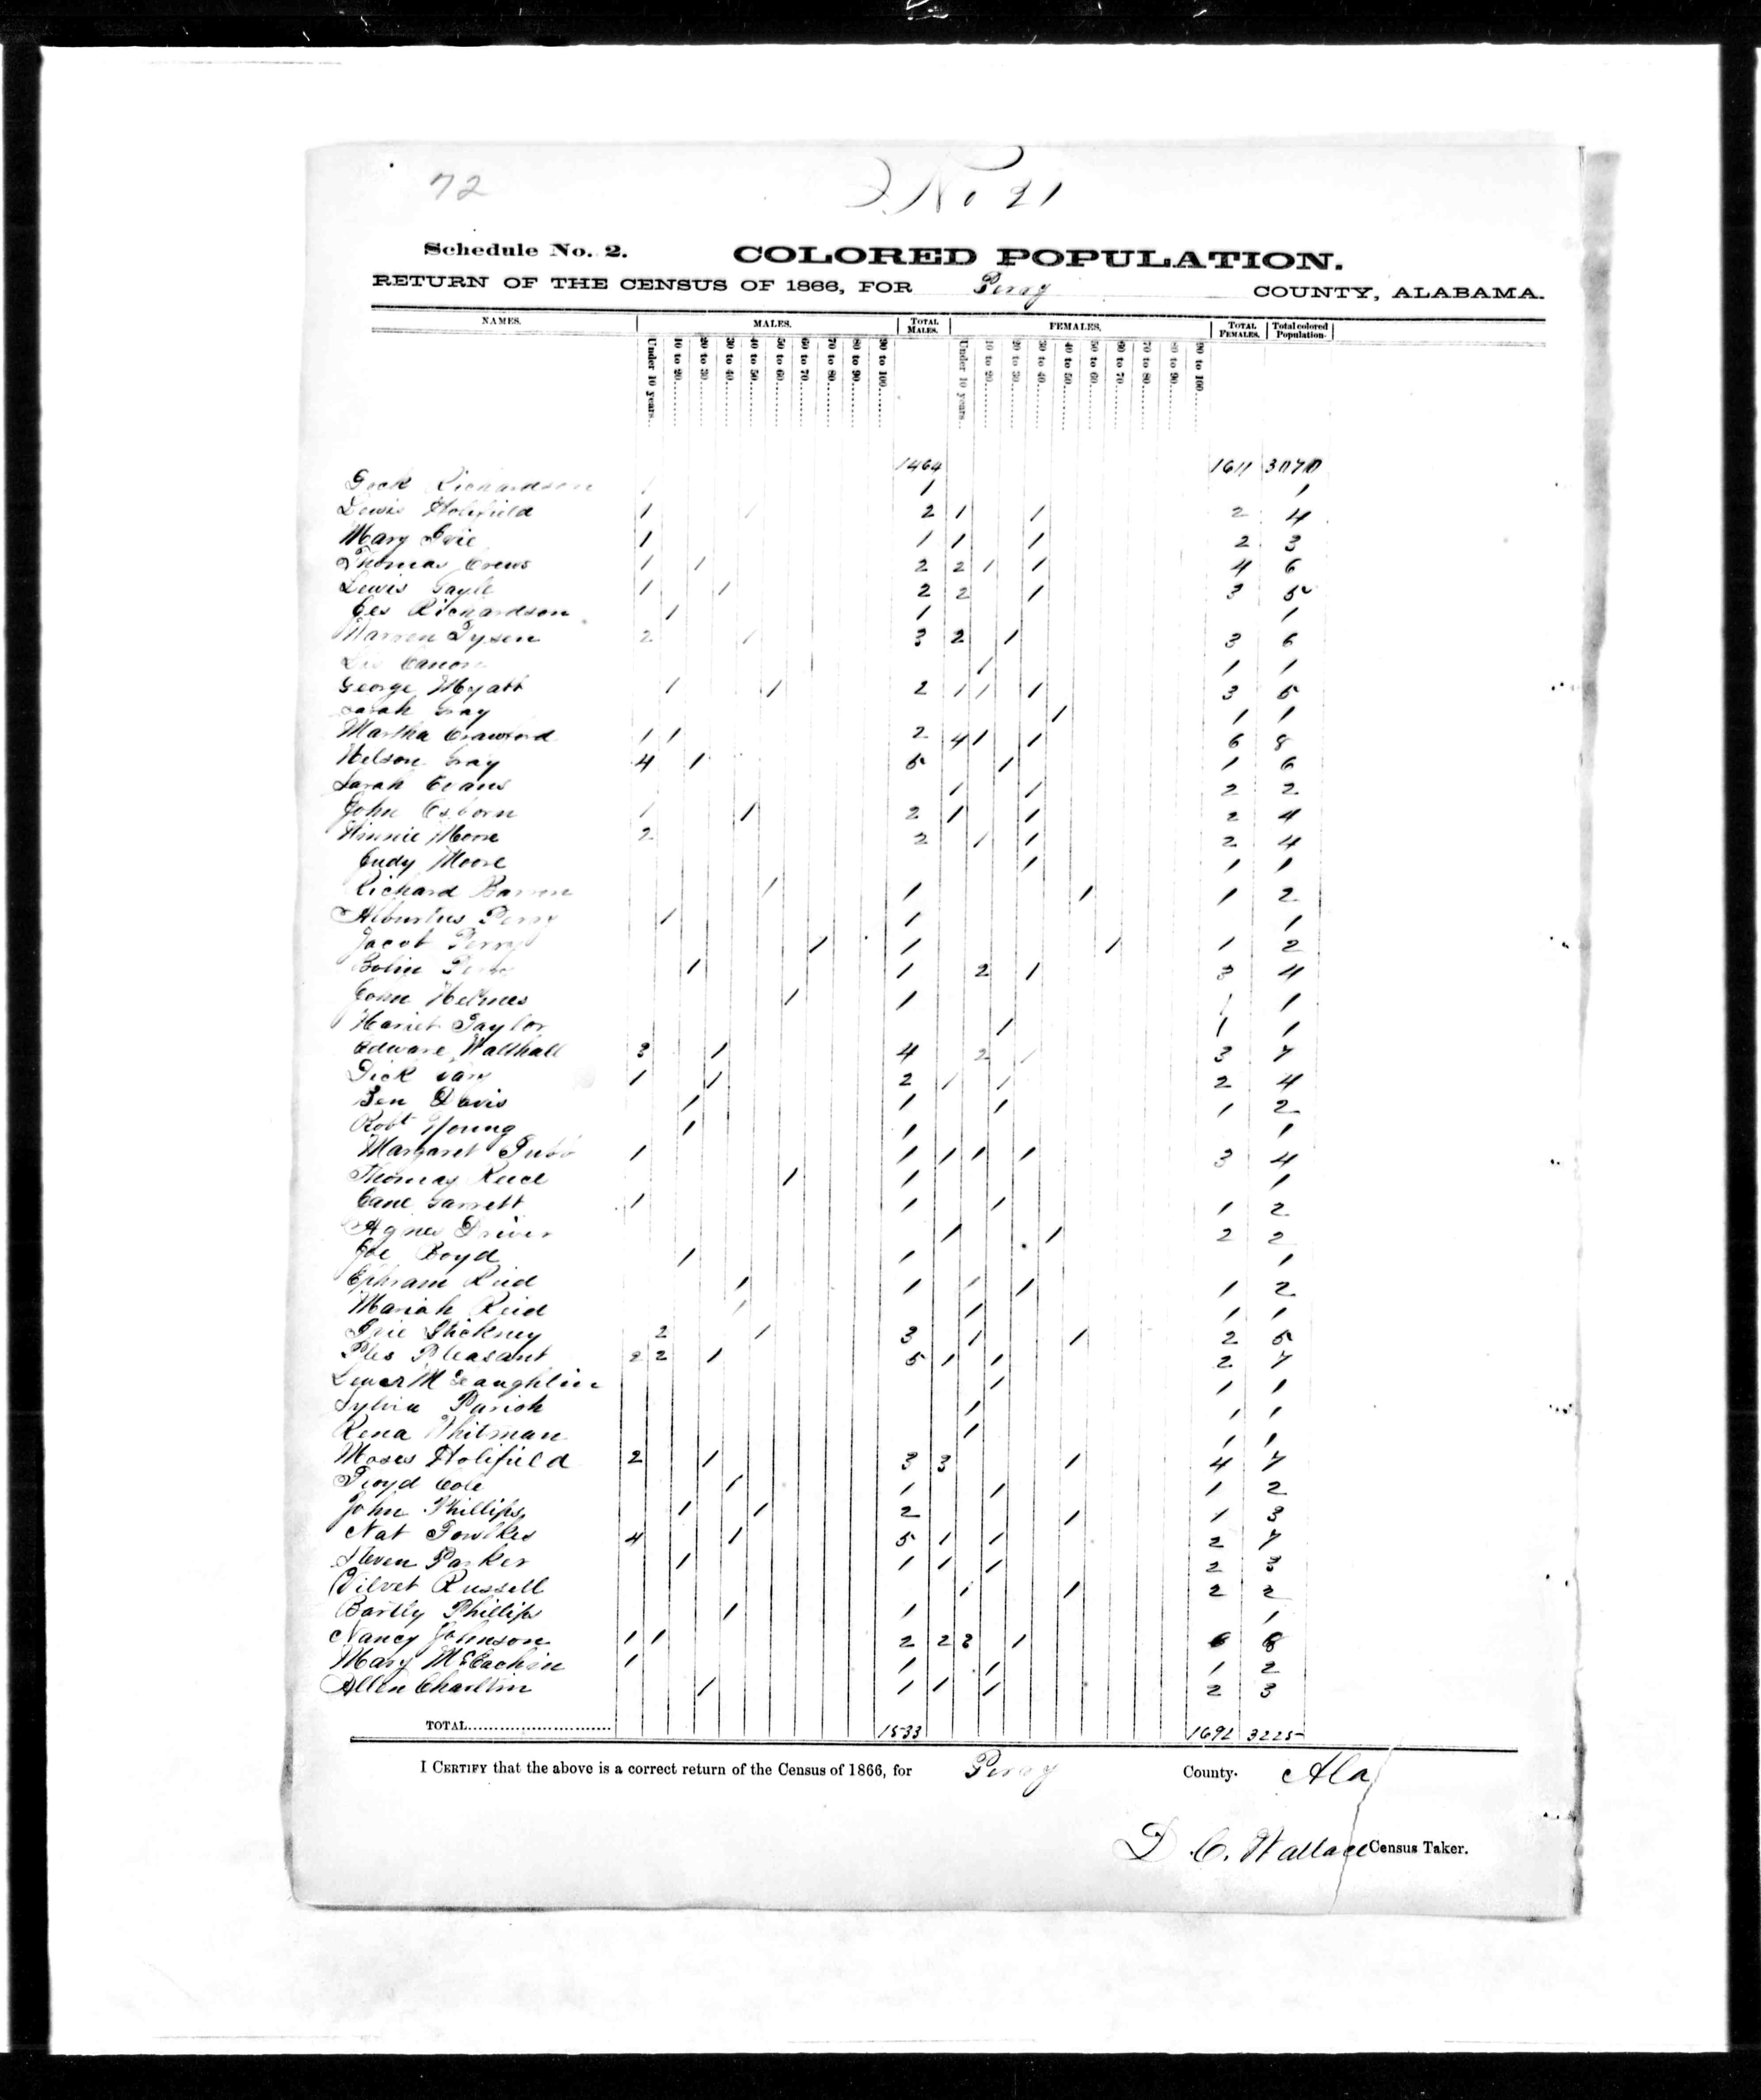 72
No 21
Schedule No. 2. COLORED POPULATION.
RETURN OF THE CENSUS OF 1866, FOR Perry COUNTY, ALABAMA.
NAMES. MALES. TOTAL MALES. FEMALES, TOTAL FEMALES. Total colored Population.
Under 10 years.. 10 to 20 20 to 30 30 to 40 40 to 50 50 to 60 60 to 70 70 to 80 80 to 90 90 to 100 Under 10 years.. 10 to 20 20 to 30 30 to 40 40 to 50 50 to 60 60 to 70 70 to 80 80 to 90 90 to 100
1464 1611
Richardson 1 1
Lewis Holifield 1 1 2 1 1 2 4
Mary 1 1 1 1 2 3
Thomas Crews 1 1 2 2 1 1 4 6
Lewis Gayle 1 1 2 2 1 3 5
Richardson 1 1 1
Warren Tysen 2 1 3 2 1 3 6
1 1 1
George Myatt 1 1 2 1 1 1 3 5
Sarah Gray 1 1 1
Martha Crawford 1 1 2 4 1 1 6 8
Nelson Gray 4 1 5 1 1 6
Sarah Evans 1 1 2 2
John Osborn 1 1 2 1 1 2 4
Winnie Moore 2 2 1 1 2 4
Judy Moore 1 1 1
Richard 1 1 1 1 2
Perry 1 1 1
Jacob Perry 1 1 1 1 2
Bolin 1 1 2 1 3 4
John Helmes 1 1 1 1
Hariet Taylor 1 1 1
Walthall 3 1 4 2 1 3 7
Dick 1 1 2 1 1 2 4
Ben Davis 1 1 1 1 2
Robt Young 1 1 1
Margaret 1 1 1 1 1 3 4
Thomas 1 1 1
Garrett 1 1 1 1 2
Agnes Driver 1 1 2 2
Joe Boyd 1 1 1
Ephram Reid 1 1 1 1 1 2
Mariah Reid 1 1 1 1
Stickney 2 1 3 1 1 2 5
Ples Pleasant 2 2 1 5 1 1 2 7
McLaughlin 1 1 1
Sylvia Parish 1 1 1
Rena Whitman 1 1 1
Moses Holifield 2 1 3 3 1 4 7
Floyd Cole 1 1 1 1 2
John Phillips 1 1 2 1 1 3
Nat Fowlkes 4 1 5 1 1 2 7
Steven Parker 1 1 1 1 2 3
Vilvet Russell 1 1 2 2
Bartly Phillips 1 1 1
Nancy Johnson 1 1 2 2 3 1 6 8
Mary McEachin 1 1 1 1 2
Allen Charltin 1 1 1 1 2 3
TOTAL 1533 1692 3225
I CERTIFY that the above is a correct return of the Census of 1866, for Perry County. Ala
D. C. Wallace Census Taker.